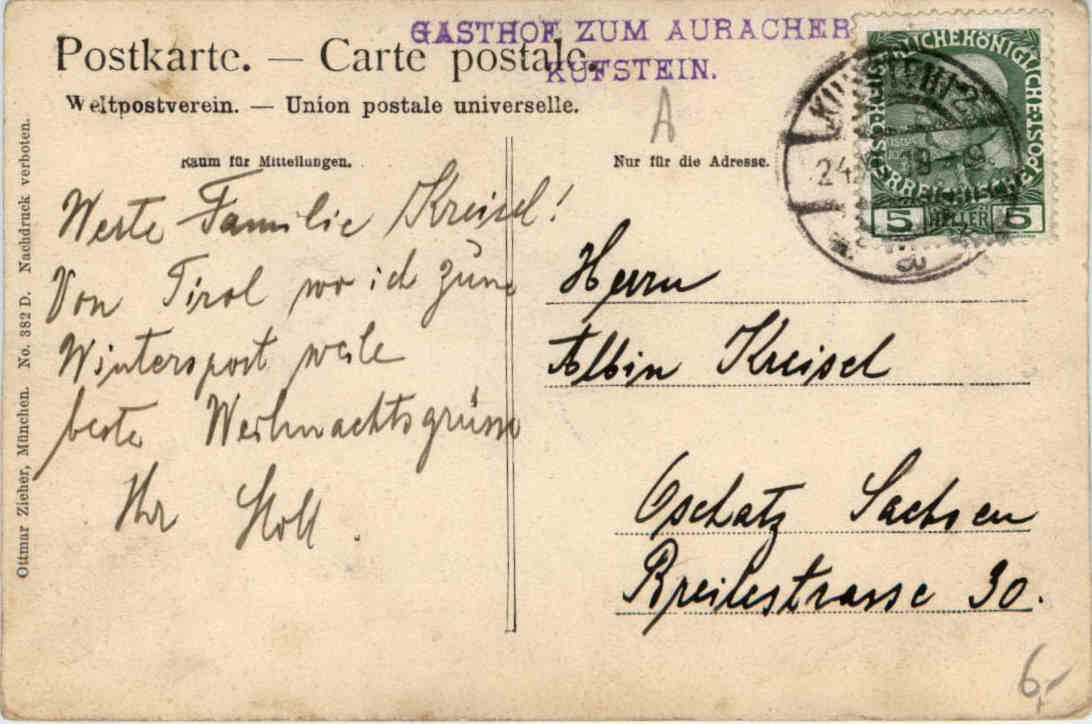 GASTHOF ZUM AURACHER
KUFSTEIN.
Postkarte. — Carte postale.
Weltpostverein. — Union postale universelle.
A
Raum für Mitteilungen.
Nur für die Adresse.
KUFSTEIN 2
24
5 HELLER 5
Werte Familie Kreisel!
Von Tirol wo ich zum
Wintersport weile
beste Weihnachtsgrüsse
Ihr
Herrn
Albin Kreisel
Oschatz Sachsen
Breitestrasse 30.
Ottmar Zieher, München. No. 382 D. Nachdruck verboten.
6,-